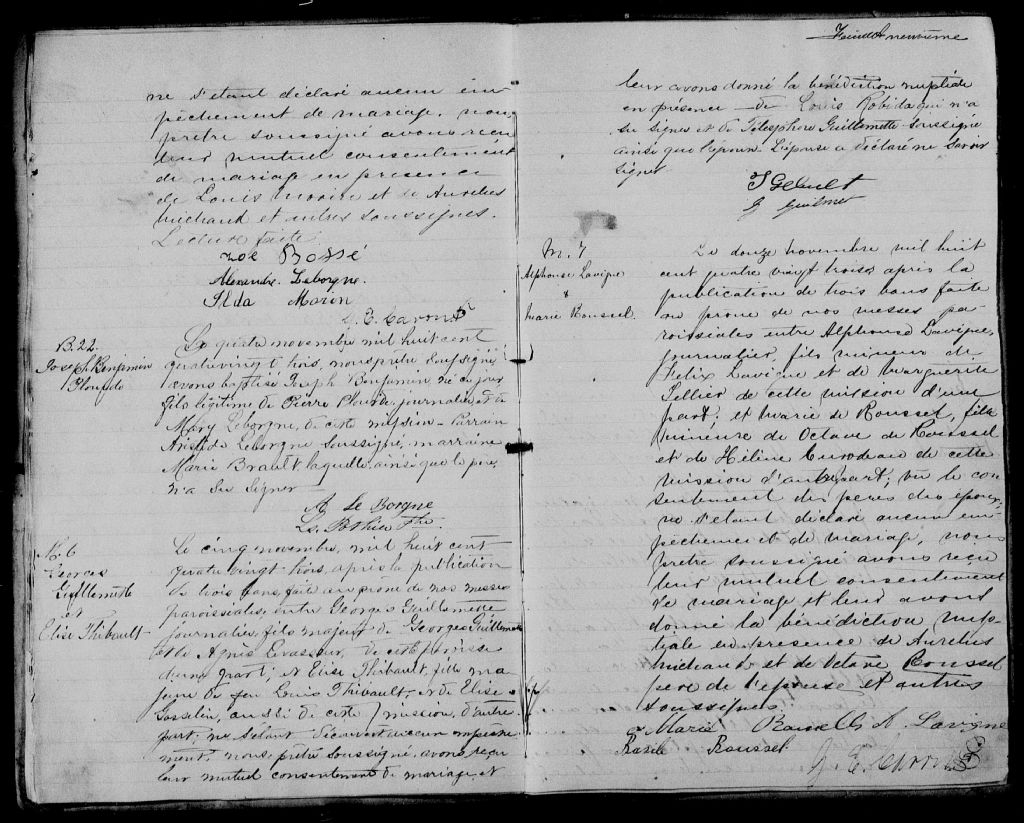 ne s'étant déclaré aucun em-
pêchement de mariage, nous
prêtre soussigné avons reçu
leur mutuel consentement
de mariage en présence
de Louis et de Aurelius
Michaud et autres soussignés.
Lecture faite.
Zoé Bossé
Alexandre Leborgne.
Ilda Morin
J. E. Caron Ptre
B. 22.
Joseph Benjamin
Plourde
Le quatre novembre mil huit cent
quatrevingt trois, nous prêtre soussigné
avons baptisé Joseph Benjamin, né ce jour
fils légitime de Pierre Plourde journalier et de
Mary Leborgne, de cette mission. Parrain
Aristide Leborgne soussigné, marraine
Marie Brault laquelle, ainsi que le père,
n'a su signer
A Le Borgne
Ls. Pothier Ptre.
M. 6
Georges
Guillemette
et
Elise Thibault
Le cinq novembre, mil huit cent
quatre vingt trois, après la publication
de trois bans faite au prône de nos messes
paroissiales, entre Georges Guillemette
journalier, fils majeur de Georges Guillemette
et de Agnès Levasseur, de cette paroisse
d'une part, et Elise Thibault, fille ma-
jeure de feu Louis Thibault, et de Elise
Gosselin, aussi de cette mission, d'autre
part, ne s'étant découvert aucun empêche-
ment, nous, prêtre soussigné, avons reçu
leur mutuel consentement de mariage, et
neuvième
leur avons donné la bénédiction nuptiale
en présence de Louis Robida qui n'a
su signer et de Télesphore Guillemette soussigné
ainsi que l'époux. L'épouse a déclaré ne savoir
signer
T Gelmet
G Guilmet
M. 7
Alphonse Lavigne
&
Marie Roussel.
Le douze novembre mil huit
cent quatre vingt trois après la
publication de trois bans faite
au prone de nos messes pa-
roissiales entre Alphonse Lavigne,
journalier, fils mineur de
Felix Lavigne et de Marguerite
Pellier de cette mission d'une
part; et Marie de Roussel, fille
mineure de Octave de Roussel
et de Hélène Curodeau de cette
mission d'autre part; vu le con
sentement des peres des epoux,
ne s'etant déclaré aucun em
pêchement de mariage, nous
prêtre soussigné avons reçu
leur mutuel consentement
de mariage et leur avons
donné la bénédiction nup
tiale en présence de Aurelius
Michaud et de Octave Roussel
pere de l'épouse et autres
soussignés.
Marie Roussell A Lavigne
Rosile Roussel
J. E. Caron Ptre